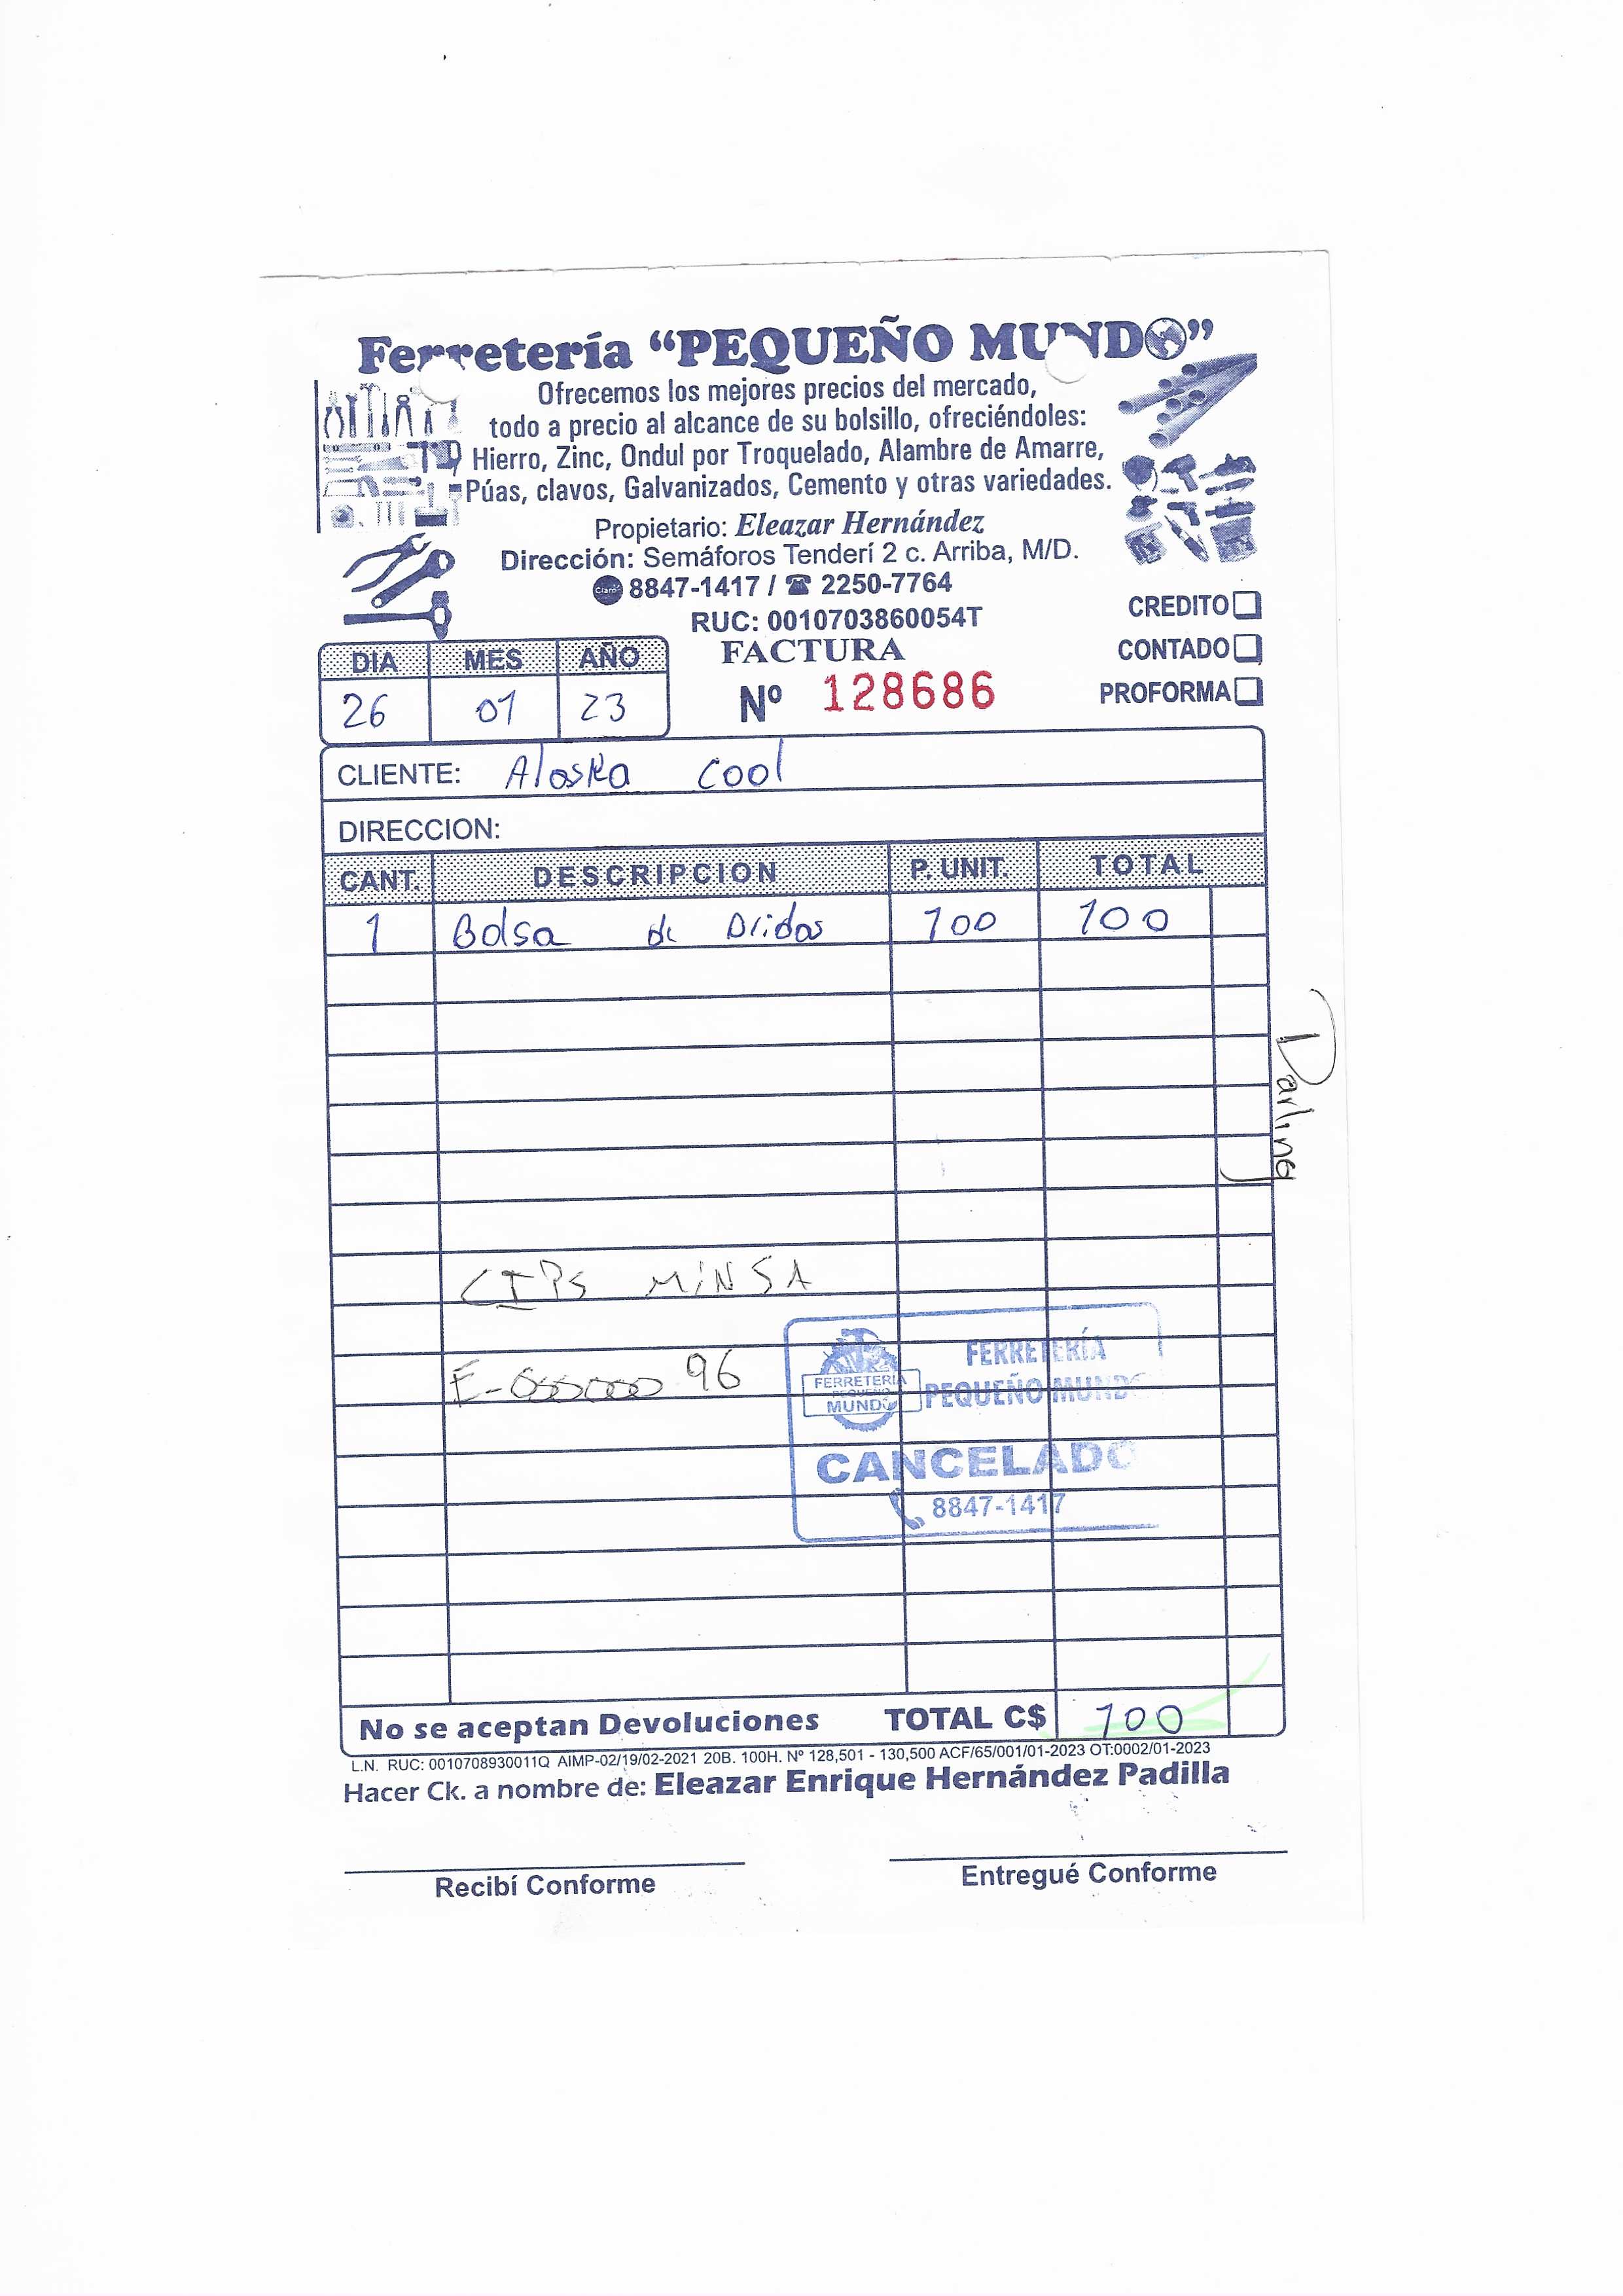 Ferretería "PEQUEÑO MUNDO"
Ofrecemos los mejores precios del mercado,
todo a precio al alcance de su bolsillo, ofreciéndoles:
Hierro, Zinc, Ondul por Troquelado, Alambre de Amarre,
Púas, clavos, Galvanizados, Cemento y otras variedades.
Propietario: Eleazar Hernández
Dirección: Semáforos Tenderí 2 c. Arriba, M/D.
Claro 8847-1417 / ☎ 2250-7764
RUC: 0010703860054T
CREDITO
CONTADO
PROFORMA
FACTURA
Nº 128686
DIA MES AÑO
26 01 23
CLIENTE: Alaska Cool
DIRECCION:
CANT. DESCRIPCION P. UNIT. TOTAL
1 Bolsa de Bridas 100 100
Darling
CIPS MINSA
E-00000096
FERRETERÍA
PEQUEÑO MUNDO
FERRETERIA
PEQUEÑO
MUNDO
CANCELADO
8847-1417
No se aceptan Devoluciones TOTAL C$ 100
L.N. RUC: 0010708930011Q AIMP-02/19/02-2021 20B. 100H. Nº 128,501 - 130,500 ACF/65/001/01-2023 OT:0002/01-2023
Hacer Ck. a nombre de: Eleazar Enrique Hernández Padilla
Recibí Conforme
Entregué Conforme